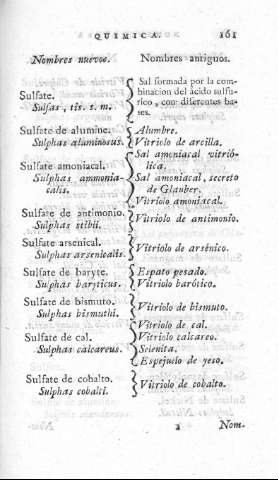 QUIMICA. 161
Nombres nuevos. Nombres antiguos.
Sulfate.
Sulfas, tis. s. m.
Sal formada por la com-
binacion del ácido sulfu-
rico, con diferentes ba-
ses.
Sulfate de alumine.
Sulphas aluminosus.
Alumbre.
Vitriolo de arcilla.
Sulfate amoniacal.
Sulphas ammonia-
calis.
Sal amoniacal vitrió-
lica.
Sal amoniacal, secreto
de Glauber.
Vitriolo amoniacal.
Sulfate de antimonio.
Sulphas stibii.
Vitriolo de antimonio.
Sulfate arsenical.
Sulphas arsenicalis.
Vitriolo de arsénico.
Sulfate de baryte.
Sulphas baryticus.
Espato pesado.
Vitriolo barótico.
Sulfate de bismuto.
Sulphas bismuthi.
Vitriolo de bismuto.
Sulfate de cal.
Sulphas calcareus.
Vitriolo de cal.
Vitriolo calcareo.
Selenita.
Espejuelo de yeso.
Sulfate de cobalto.
Sulphas cobalti.
Vitriolo de cobalto.
Nom-